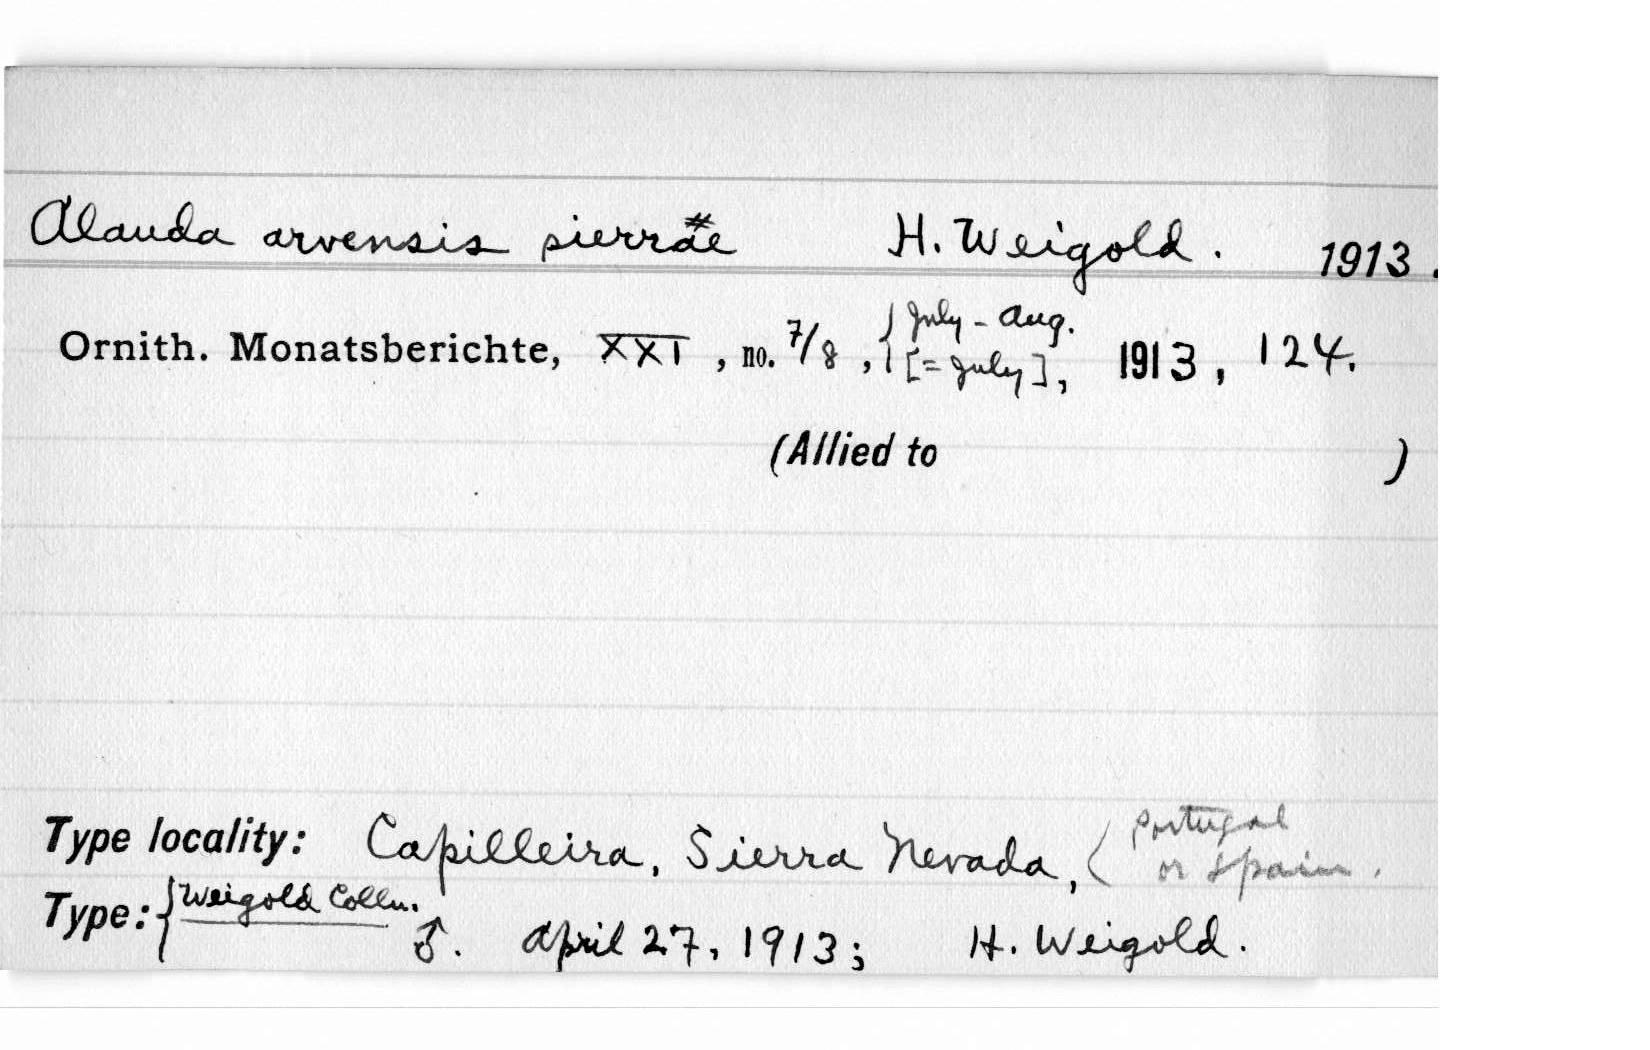 Alauda arvensis pierrae # H. Weigold. 1913.
Ornith. Monatsberichte, XXI, no. 7/8, { July - Aug. [= July], 1913, 124.
(Allied to )
Type locality: Capilleira, Sierra Nevada, { Portugal or Spain.
Type: { Weigold Colln. ♂. April 27, 1913; H. Weigold.